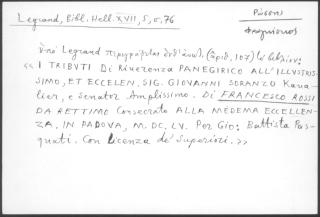 Legrand, Bibl. Hell. XVII, 5, σ. 76
Ρώσσης
Φραγκίσκος
Ὑπὸ Legrand περιγράφεται (ἀριθ. 107) τὸ βιβλίον:
« I TRIBUTI Di Riverenza PANEGIRICO ALL'ILLVSTRIS-
SIMO, ET ECCELEN. SIG. GIOVANNI SORANZO Kava-
lier, e Senator Amplissimo. Di FRANCESCO ROSSI
DA RETTIMO Consecrato ALLA MEDEMA ECCELLEN-
ZA. IN PADOVA, M. DC. LV. Per Gio: Battista Pas-
quati. Con licenza de' Superiori. »